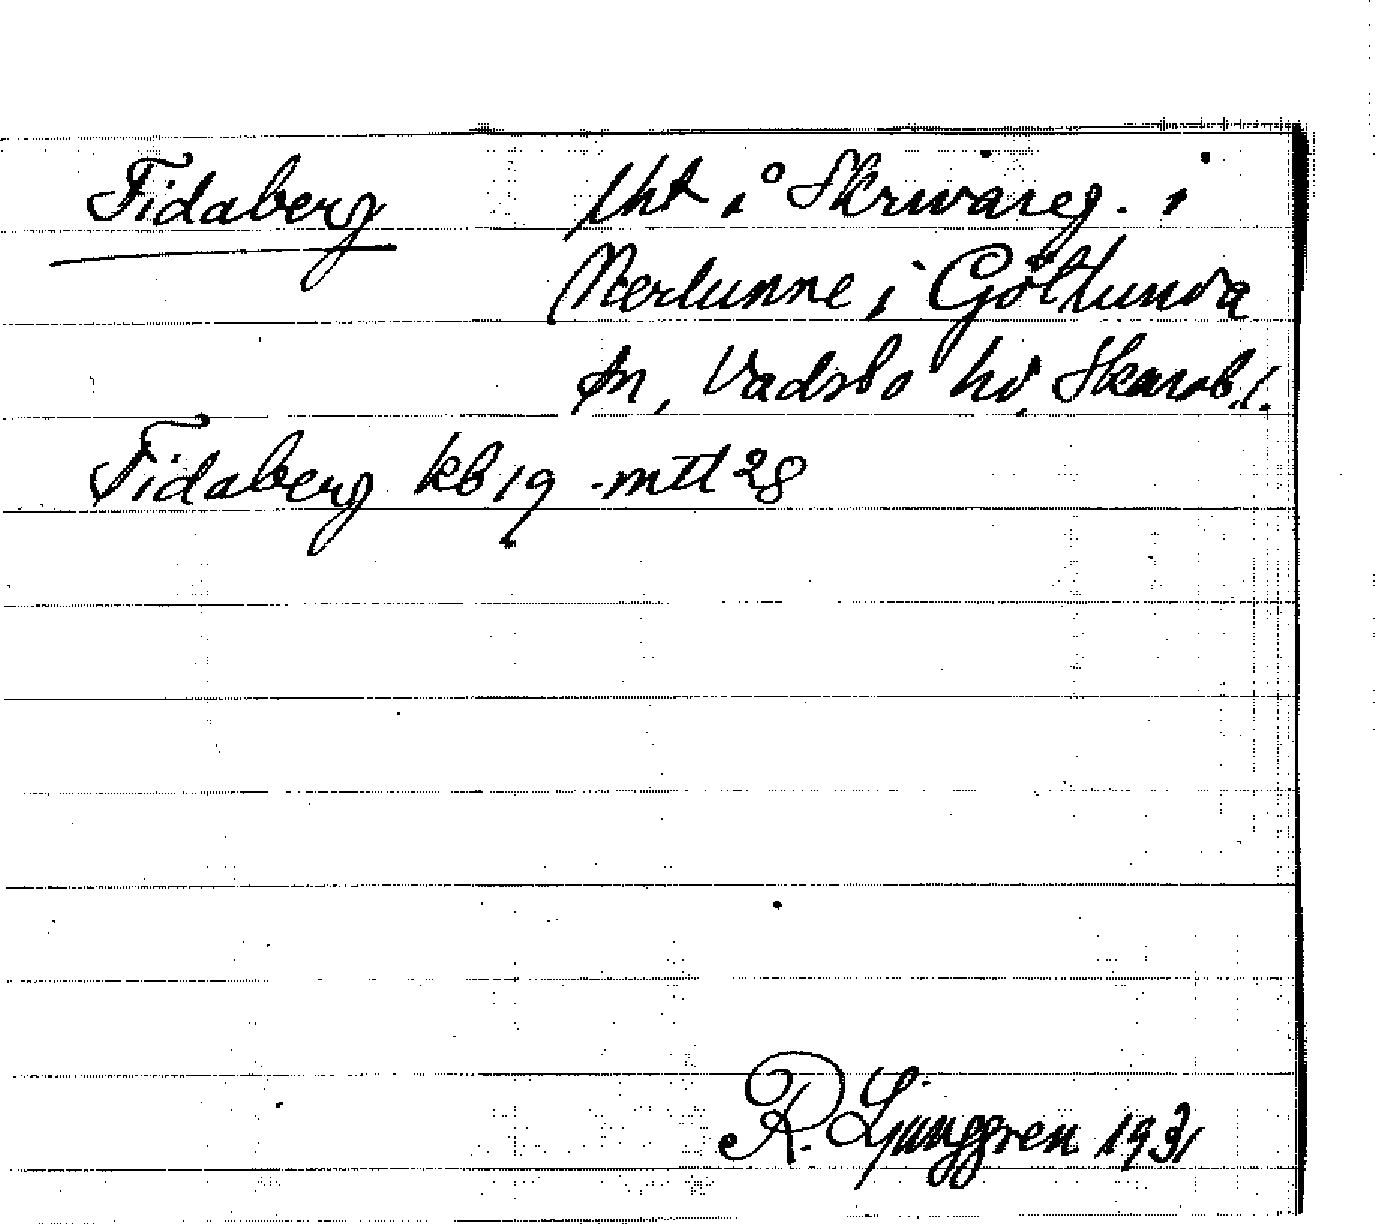 Fidaberg lht å Skrivareg. i
Nerlunne i Götlunda
sn, Vadsbo hd, Skarab.l.
Fidaberg kb 19 mtl 28
R. Ljunggren 1931